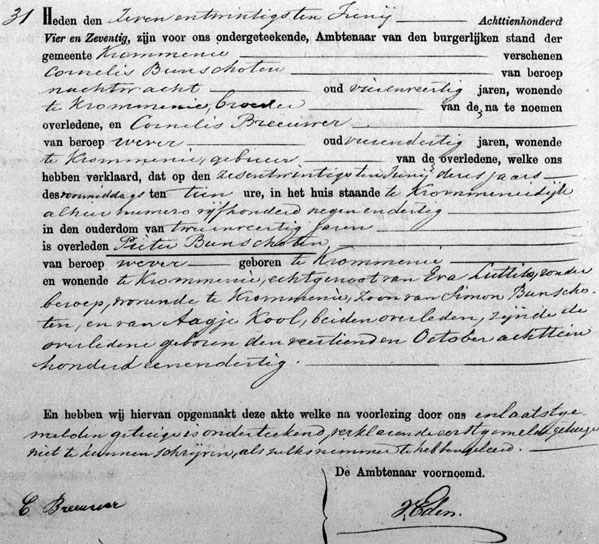 31 Heden den Zeven entwintigsten Junij Achttienhonderd
Vier en Zeventig, zijn voor ons ondergeteekende, Ambtenaar van den burgerlijken stand der
gemeente Krommenie verschenen
Cornelis Bunschoten van beroep
nachtwacht oud vierenveertig jaren, wonende
te Krommenie, broeder van de, na te noemen
overledene, en Cornelis Breeuwer
van beroep wever oud vierendertig jaren, wonende
te Krommenie, gebuur van de overledene, welke ons
hebben verklaard, dat op den zesentwintigsten Junij dezes jaars
des voormiddags ten tien ure, in het huis staande te Krommeniedijk
alhier numero vijfhonderd negenendertig
in den ouderdom van tweeenveertig jaren
is overleden Pieter Bunschoten,
van beroep wever geboren te Krommenie
en wonende te Krommenie, echtgenoot van Eva Luttik, zonder
beroep, wonende te Krommenie, zoon van Simon Bunscho-
ten, en van Aagje Kool, beiden overleden, zijnde de
overledene geboren den veertienden October achttien
honderd eenendertig.
En hebben wij hiervan opgemaakt deze akte welke na voorlezing door ons en laatstge-
melden getuige is onderteekend, verklarende eerstgemelde getuige
niet te kunnen schrijven, als zulks nimmer te hebben geleerd.
De Ambtenaar voornoemd.
C Breeuwer